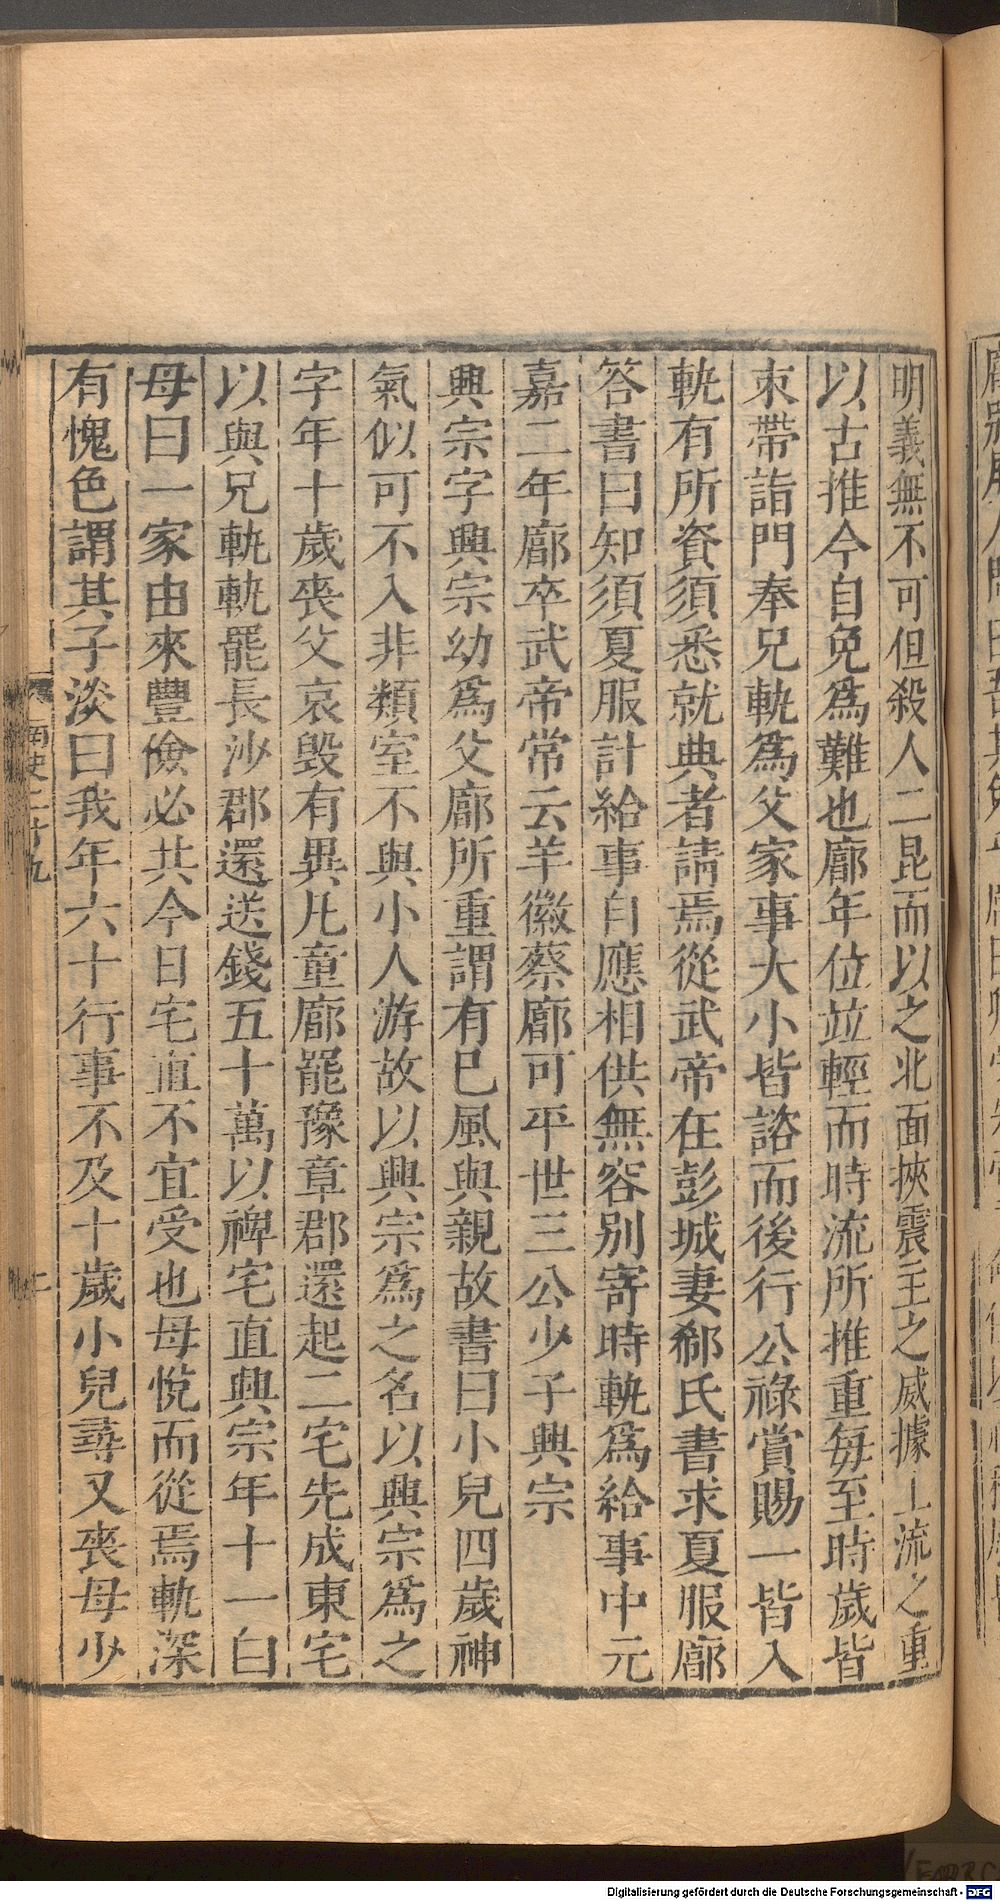 明義無不可但殺人二昆而以之北面挾震主之威據上流之重
以古推今自免爲難也廓年位竝輕而時流所推重每至時歲皆
束帶詣門奉兄軌爲父家事大小皆諮而後行公祿賞賜一皆入
軌有所資須悉就典者請焉從武帝在彭城妻郗氏書求夏服廓
答書曰知須夏服計給事自應相供無容別寄時軌爲給事中元
嘉二年廓卒武帝常云羊徽蔡廓可平世三公少子興宗
興宗字興宗幼爲父廓所重謂有巳風與親故書曰小兒四歲神
氣似可不入非類室不與小人游故以興宗爲之名以興宗爲之
字年十歲喪父哀毀有異凡童廓罷豫章郡還起二宅先成東宅
以與兄軌軌罷長沙郡還送錢五十萬以裨宅直興宗年十一白
母曰一家由來豐儉必共今日宅直不宜受也母悅而從焉軌深
有愧色謂其子淡曰我年六十行事不及十歲小兒尋又喪母少
南史二十九
二
Digitalisierung gefördert durch die Deutsche Forschungsgemeinschaft - DFG